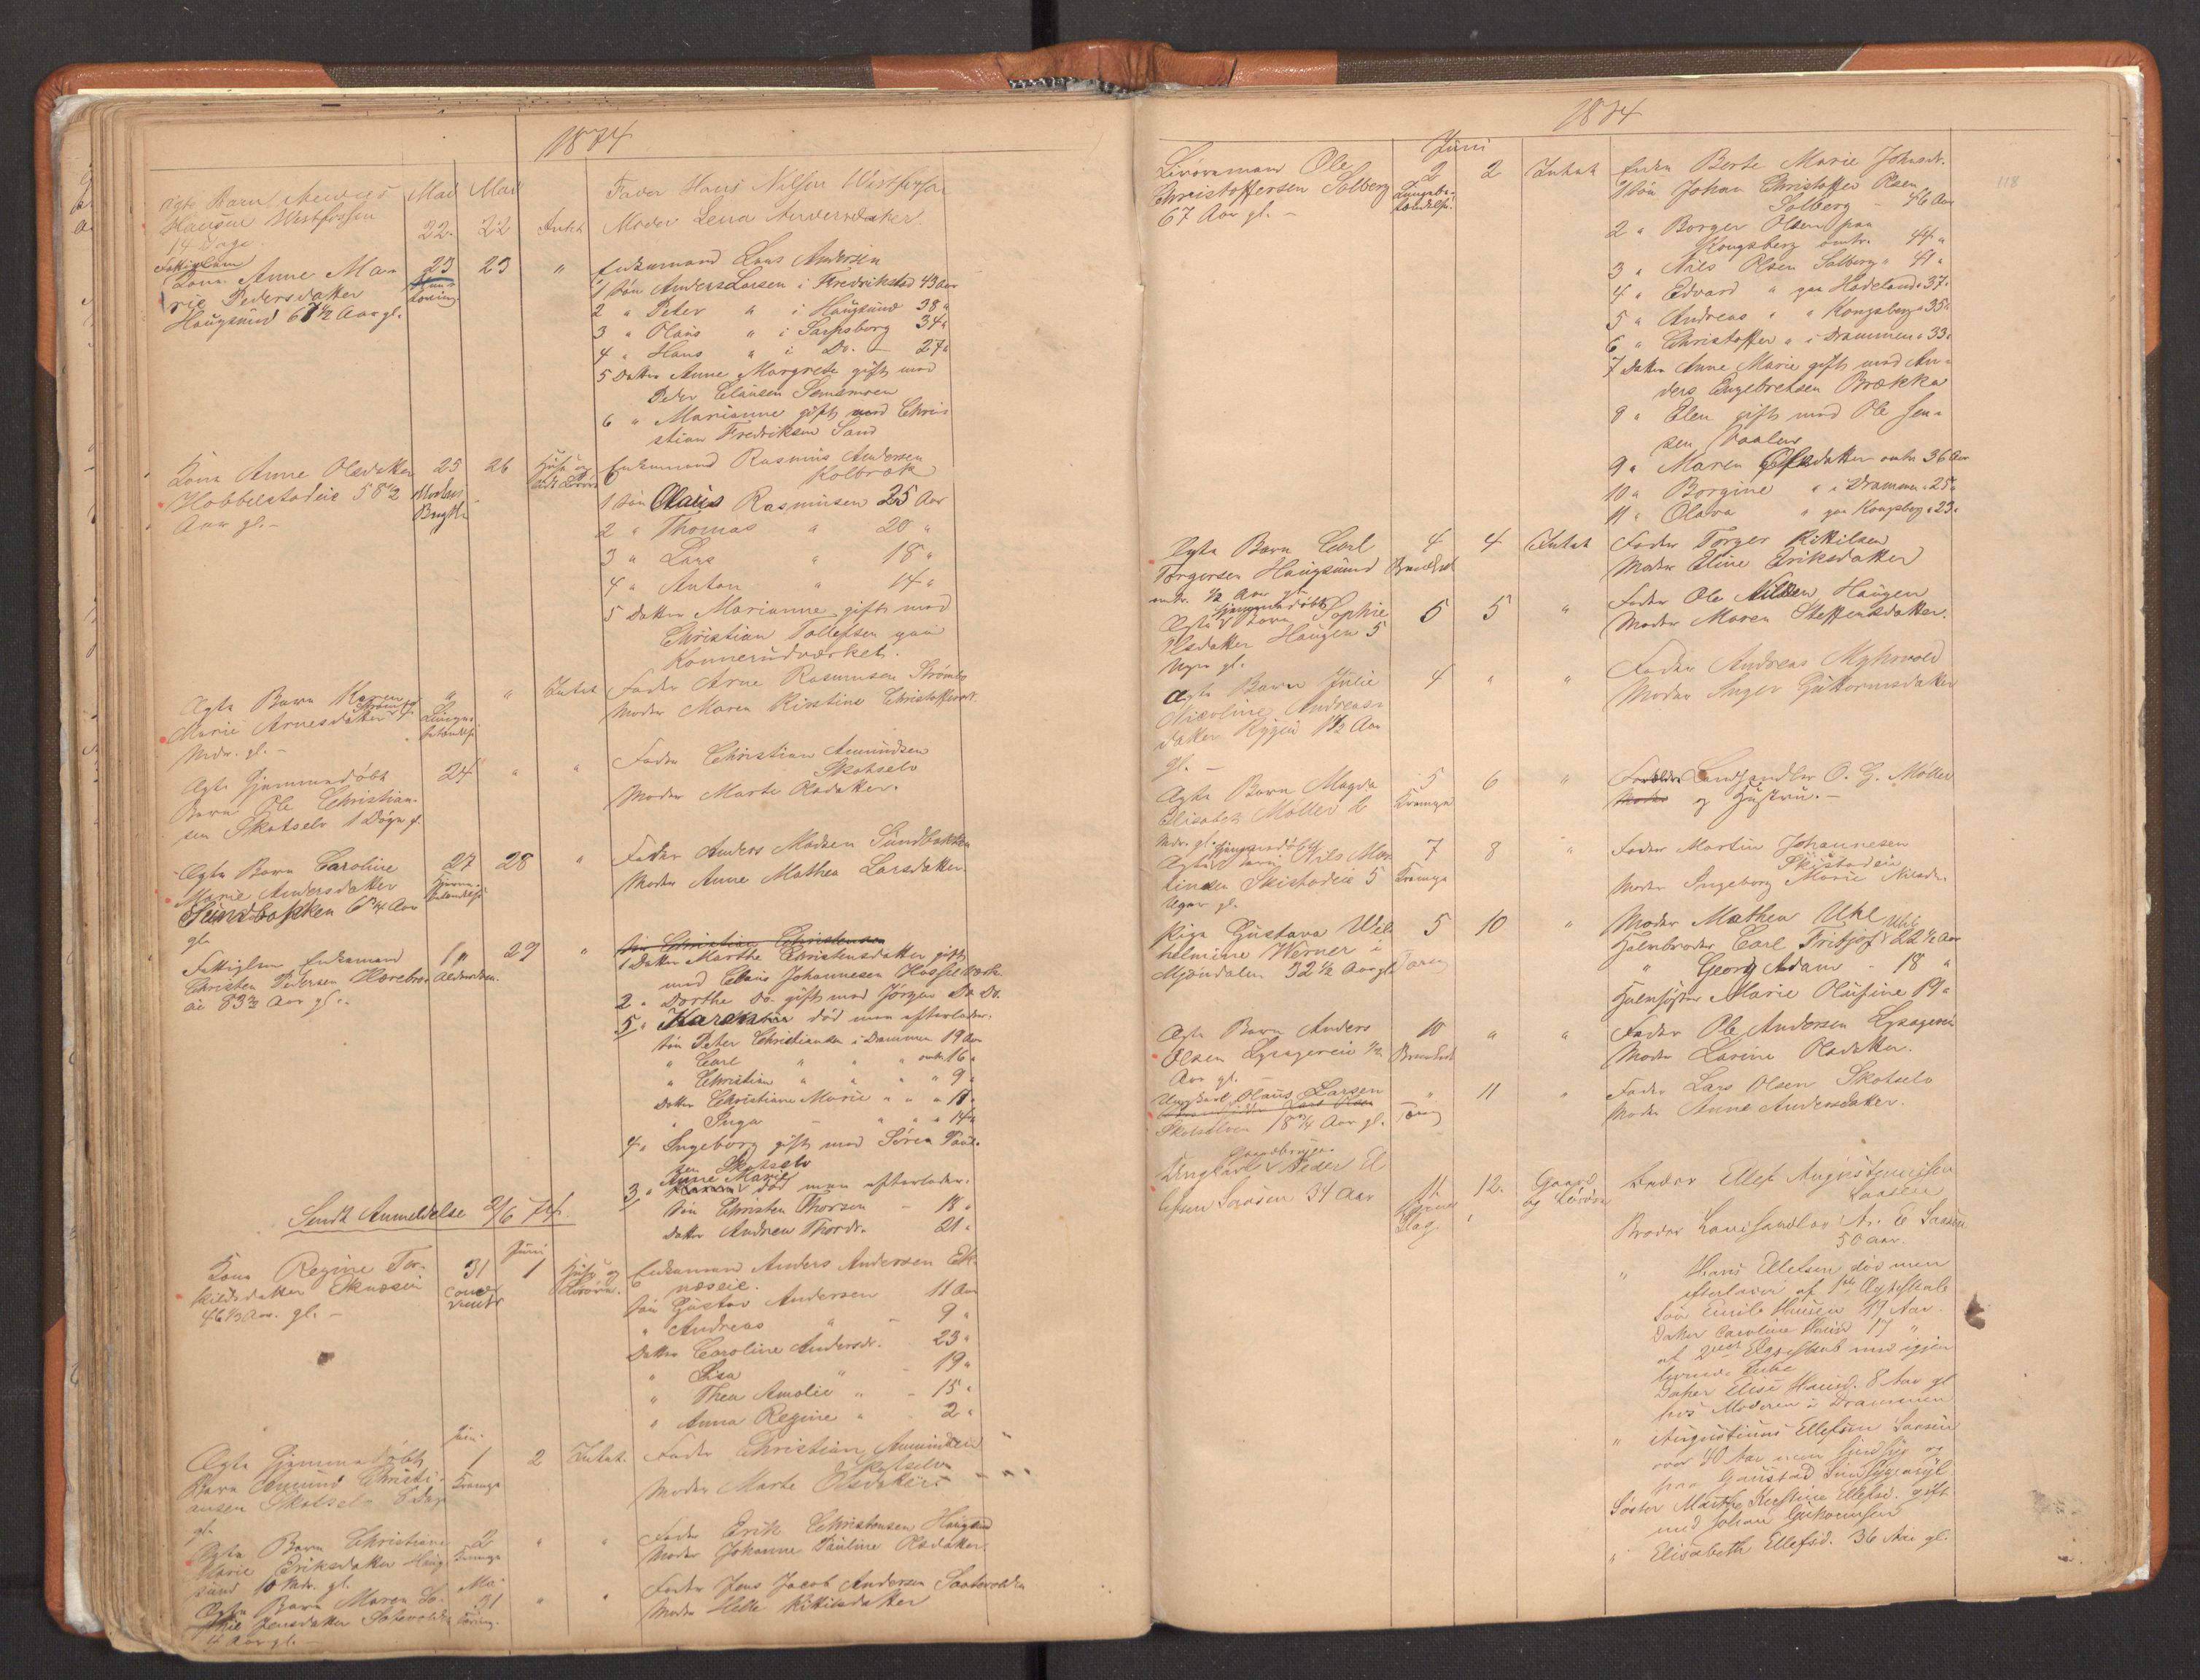 1874
Ægte Barn Andreas
Hansen Westfossen
14 Dage
Mai Mai
22. 22 Intet
Fader Hans Nilsen Westfossen
Moder Lena Andersdatter
Fattiglem
Kone Anne Ma-
rie Pedersdatter
Haugsund 67 1/2 Aar gl.
23 23 "
Enkemand Lars Andersen
1 Søn Anders Larsen i Fredrikstad 43 Aar
2 " Peter " i Haugsund 38 "
3 " Olaus " i Sarpsborg 34 "
4 " Hans " i Do. - 27 "
5 Datter Anne Margrete gift med
Peder Clausen
6 " Marianne gift med Chri-
stian Fredriksen Sand
Kone Anne Olsdatter
Hobbelstadeie 58 1/2
Aar gl. -
25 26 Huus og
Enkemand Rasmus Andersen
Kolbræk
1 Søn Olaus Rasmusen 25 Aar
2 " Thomas " 20 "
3 " Lars " 18 "
4 " Anton " 14 "
5 Datter Marianne gift med
Christian Tollefsen paa
Konnerudværket.
Ægte Barn Karen
Marie Arnesdatter
Mdr. gl. -
" " Intet
Lunge-
betændelse
Fader Arne Rasmusen Strømbo
Moder Maren Kirstine Christoffersdt.
Ægte Hjemmedøbt
Barn Ole Christian-
sen Skotselv 1 Døgn gl.
24 " "
Fader Christian Amundsen
Skotselv
Moder Marte Olsdatter.
Ægte Barn Caroline
Marie Andersdatter
Sundbakken 6 3/4 Aar
gl.
27 28 "
Hjerne-
betændelse
Fader Anders Madsen Sundbakken
Moder Anne Mathea Larsdatter
Fattiglem Enkemand
Christen Pedersen
83 3/4 Aar gl. -
29 "
Alderdom.
Søn Christian Christensen
1 Datter Marthe Christensdatter gift
med Claus Johannesen
2 " Dorthe do. gift med Jørgen Do Do.
5 " Karen død men efterlader:
Søn Peter Christiansen i Drammen 19 Aar
" Carl " " " omtr. 16 "
" Christian " " " " 9 "
Datter Christiane Marie " " " 18 "
" Inga - " " " 14 "
4 " Ingeborg gift med Søren Paul-
sen Skotselv
3 " Anne Marie død men efterlader:
Søn Christen Thorsen - 18 "
Datter Andrea Thorsdr. 21 "
Sendt Anmeldelse 2/6 74.
Kone Regine Tor-
kildsdatter Eknæseie
46 1/3 Aar. gl. -
Juni
31 1 Huus og
Løsøre.
Enkemand Anders Andersen Ek-
næseie.
Søn Gustav Andersen 11 Aar
" Andreas " - 9 "
Datter Caroline Andersdr. 23 "
" Lisa " - 19 "
" Thea Amalie " - 15 "
" Anna Regine " 2 "
Ægte Hjemmedøbt
Barn Amund Christi-
ansen Skotselv 8 Dage
gl.
Juni
1 2 Intet.
Krampe
Fader Christian Amundsen
Skotselv
Moder Marte Olsdatter.
Ægte Barn Christiane
Marie Eriksdatter Haug-
sund 10 Mdr. gl.
2 " "
Krampe
Fader Erik Christensen Haugsund
Moder Johanne Pauline Olsdatter.
Ægte Barn Maren So-
phie Jensdatter
4 Aar gl. -
Mai
31 " "
Tæring.
Fader Jens Jacob Andersen
Moder Helle Kittilsdatter
1874
118
Juni
Livøremand Ole
Christoffersen Solberg
67 Aar gl. -
2 2 Intet
Lungebe-
tændelse.
Enken Berte Marie Johnsdr.
1 Søn Johan Christoffer Olsen
Solberg - 46 Aar
2 " Borger Olsen paa
Kongsberg omtr. 44 "
3 " Nils Olsen Solberg " 41 "
4 " Edvard " paa Hadeland " 37 "
5 " Andreas " " Kongsberg " 35 "
6 " Christoffer " i Drammen " 33 "
7 Datter Anne Marie gift med An-
ders Engebretsen Brekka
8 " Elen gift med Ole Jen-
sen
9 " Maren Olsdatter omtr. 36 Aar
10 " Borgine " i Drammen " 25 "
11 " Olava " paa Kongsberg " 23 "
Ægte Barn Carl
Torgersen Haugsund
omtr. 1/2 Aar gl.
4 4 Intet
Fader Torger Kittilsen
Moder Eline Eriksdatter
Ægte hjemmedøbt Barn Sophie
Olsdatter Haugen 5
Uger gl.
5 5 "
Fader Ole Nilsen Haugen
Moder Maren Steffensdatter.
Ægte Barn Julie
Nicoline Andreas-
datter Ryggen 1 1/2 Aar
gl. -
4 " "
Fader Andreas Myhrvold
Moder Inger Guttormsdatter
Ægte Barn Magda
Elisabet Møller 6
Mdr. gl.
5 6 "
Krampe
Forældre Landhandler O. G. Møller
Moder og Hustru. -
Ægte hjemmedøbt Barn Nils Mar-
tinsen Skistadeie 5
Uger gl.
7 8 "
Krampe
Fader Martin Johannesen
Skistadeie
Moder Ingeborg Marie Nilsdr.
Pige Gustava Wil-
helmine Werner i
Mjøndalen 32 1/2 Aar gl.
5 10 "
Tæring
Moder Mathea Uhl
Halvbroder Carl Fritjof Uhl 22 1/2 Aar
" Georg Adam - 18 "
Halvsøster Marie Olufine 19 "
Ægte Barn Anders
Olsen 1/2
Aar gl.
10 " "
Fader Ole Andersen
Moder Lavine Olsdatter.
Ungkarl Olaus Larsen
Skotselven 18 3/4 Aar gl.
" 11 "
Tæring
Fader Lars Olsen Skotselv
Moder Anne Andersdatter.
Gaardbruger
Ungkarl Peder El-
lefsen Saasen 34 Aar
11. 12. Gaard
og Løsøre
Slag.
Fader Ellef Augustinussen
Saasen
Broder Landhandler A. E. Saasen
50 Aar.
" Hans Ellefsen død men
efterlader af 1ste Ægteskab
Søn Emil Hansen 19 Aar.
Datter Caroline Hansd 17 "
af 2det Ægteskab med igjen
levende Enke
Datter Elise Hansd. 8 Aar gl
hos Moderen i Drammen
" Augustinus Ellefsen Saasen
over 40 Aar, men sindssyg og
paa Gaustad Sindssygeasyl
Søster Marthe Kirstine Ellefsd. gift
med Johan Guttormsen
" Elisabeth Ellefsd. 36 Aar gl.